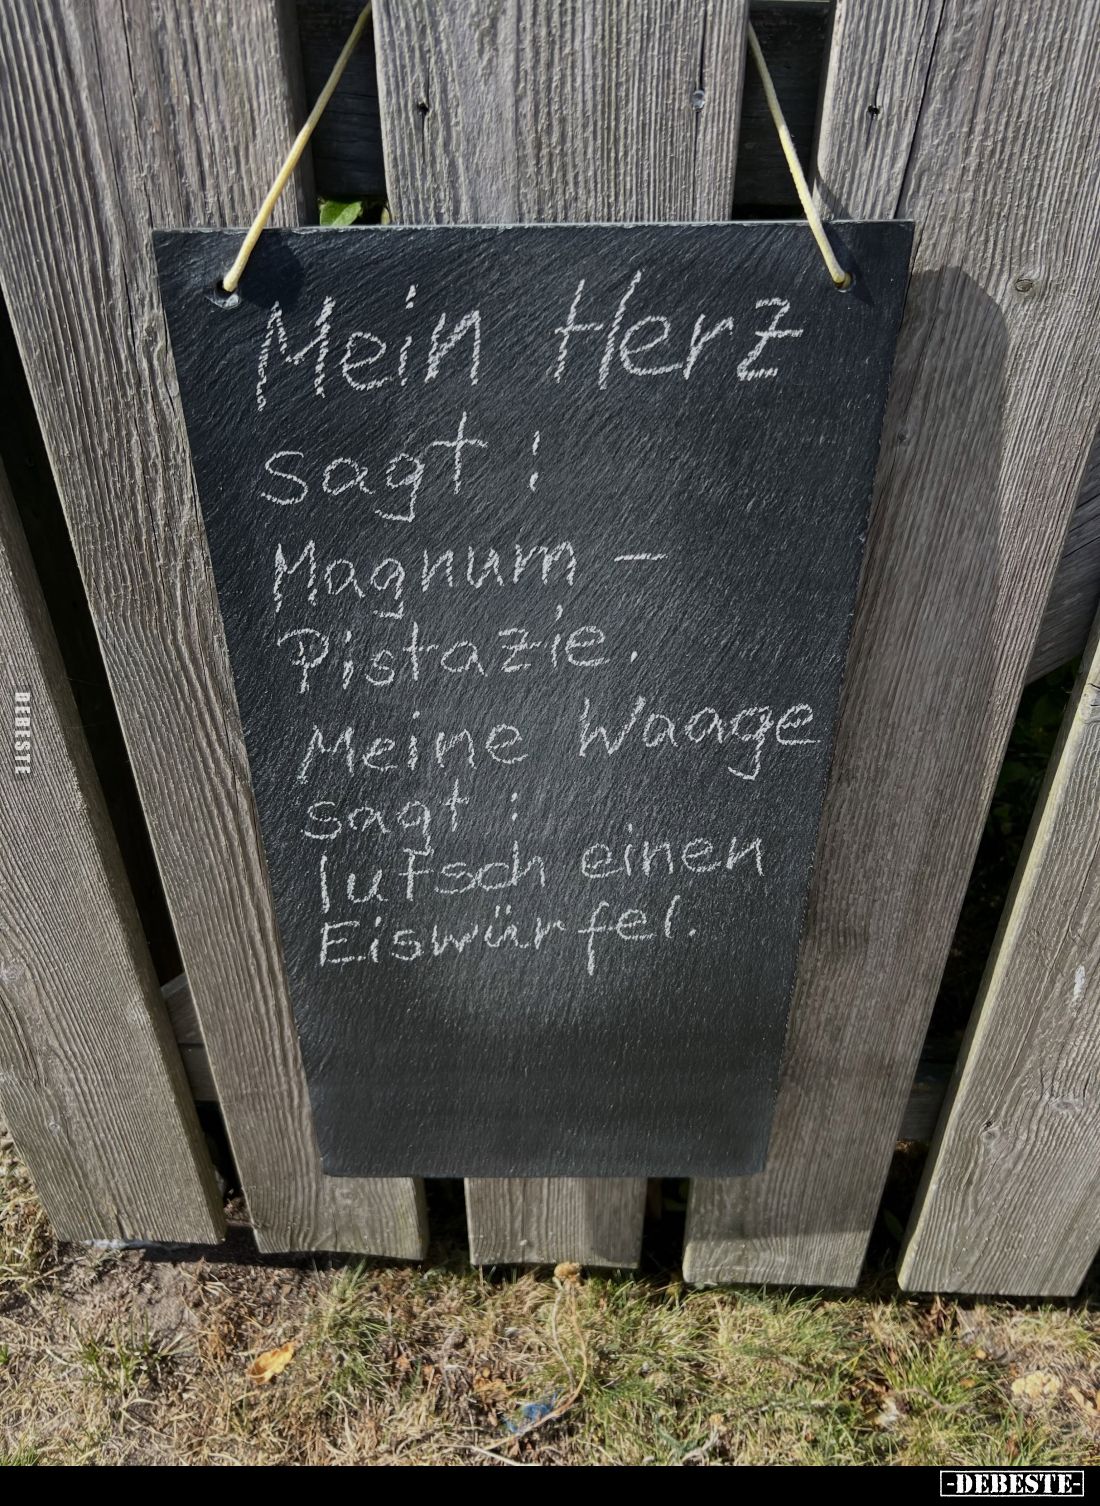 Mein Herz
sagt:
Magnum-
Pistazie.
Meine Waage
sagt:
lutsch einen
Eiswürfel.
DEBESTE
-DEBESTE-